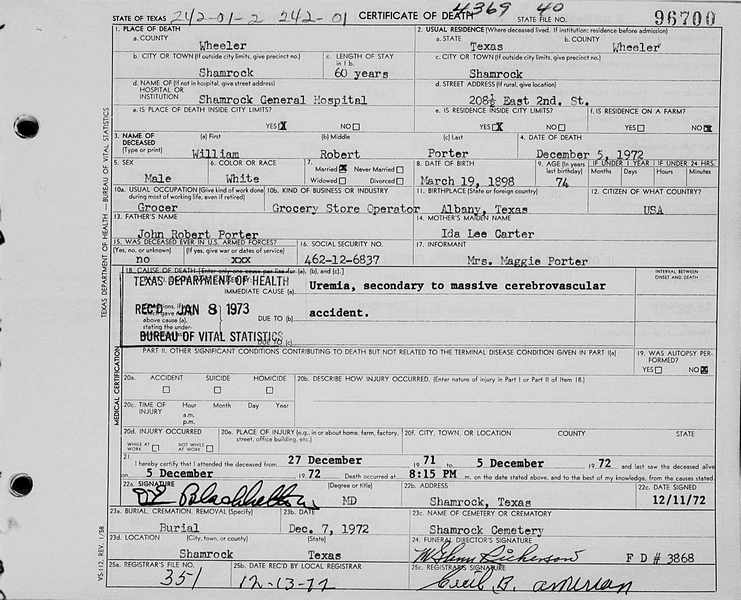 STATE OF TEXAS 242-01-2 242-01 CERTIFICATE OF DEATH 4369 40 STATE FILE NO. 96700
1. PLACE OF DEATH 2. USUAL RESIDENCE (Where deceased lived. If institution: residence before admission)
a. COUNTY a. STATE b. COUNTY
Wheeler Texas Wheeler
b. CITY OR TOWN (If outside city limits, give precinct no.) c. LENGTH OF STAY in 1 b. c. CITY OR TOWN (If outside city limits, give precinct no.)
Shamrock 60 years Shamrock
d. NAME OF (If not in hospital, give street address) HOSPITAL OR INSTITUTION d. STREET ADDRESS (If rural, give location)
Shamrock General Hospital 208½ East 2nd. St.
e. IS PLACE OF DEATH INSIDE CITY LIMITS? e. IS RESIDENCE INSIDE CITY LIMITS? f. IS RESIDENCE ON A FARM?
YES X NO YES X NO YES NO X
3. NAME OF DECEASED (Type or print) (a) First (b) Middle (c) Last 4. DATE OF DEATH
William Robert Porter December 5, 1972
5. SEX 6. COLOR OR RACE 7. Married X Never Married Widowed Divorced 8. DATE OF BIRTH 9. AGE (In years last birthday) IF UNDER 1 YEAR IF UNDER 24 HRS. Months Days Hours Minutes
Male White March 19, 1898 74
10a. USUAL OCCUPATION (Give kind of work done during most of working life, even if retired) 10b. KIND OF BUSINESS OR INDUSTRY 11. BIRTHPLACE (State or foreign country) 12. CITIZEN OF WHAT COUNTRY?
Grocer Grocery Store Operator Albany, Texas USA
13. FATHER'S NAME 14. MOTHER'S MAIDEN NAME
John Robert Porter Ida Lee Carter
15. WAS DECEASED EVER IN U.S. ARMED FORCES? (Yes, no, or unknown) (If yes, give war or dates of service) 16. SOCIAL SECURITY NO. 17. INFORMANT
no xxx 462-12-6837 Mrs. Maggie Porter
18. CAUSE OF DEATH [Enter only one cause per line for (a), (b), and (c).] INTERVAL BETWEEN ONSET AND DEATH
TEXAS DEPARTMENT OF HEALTH
IMMEDIATE CAUSE (a) Uremia, secondary to massive cerebrovascular
REC'D JAN 8 1973
DUE TO (b) accident.
above cause (a), stating the under-
BUREAU OF VITAL STATISTICS
DUE TO (c)
PART II. OTHER SIGNIFICANT CONDITIONS CONTRIBUTING TO DEATH BUT NOT RELATED TO THE TERMINAL DISEASE CONDITION GIVEN IN PART I(a) 19. WAS AUTOPSY PERFORMED?
YES NO X
20a. ACCIDENT SUICIDE HOMICIDE 20b. DESCRIBE HOW INJURY OCCURRED. (Enter nature of injury in Part I or Part II of item 18.)
20c. TIME OF INJURY Hour Month Day Year a.m. p.m.
20d. INJURY OCCURRED WHILE AT WORK NOT WHILE AT WORK 20e. PLACE OF INJURY (e.g., in or about home, farm, factory, street, office building, etc.) 20f. CITY, TOWN, OR LOCATION COUNTY STATE
21. I hereby certify that I attended the deceased from 27 December 19 71 to 5 December 19 72 and last saw the deceased alive
on 5 December 19 72 Death occurred at 8:15 PM m. on the date stated above, and to the best of my knowledge, from the causes stated.
22a. SIGNATURE (Degree or title) 22b. ADDRESS 22c. DATE SIGNED
MD Shamrock, Texas 12/11/72
23a. BURIAL, CREMATION, REMOVAL (Specify) 23b. DATE 23c. NAME OF CEMETERY OR CREMATORY
Burial Dec. 7, 1972 Shamrock Cemetery
23d. LOCATION (City, town, or county) (State) 24. FUNERAL DIRECTOR'S SIGNATURE
Shamrock Texas F D # 3868
25a. REGISTRAR'S FILE NO. 25b. DATE REC'D BY LOCAL REGISTRAR 25c. REGISTRAR'S SIGNATURE
351 12-13-72 Cecil B.
TEXAS DEPARTMENT OF HEALTH — BUREAU OF VITAL STATISTICS
MEDICAL CERTIFICATION
VS-112, REV. 1/58